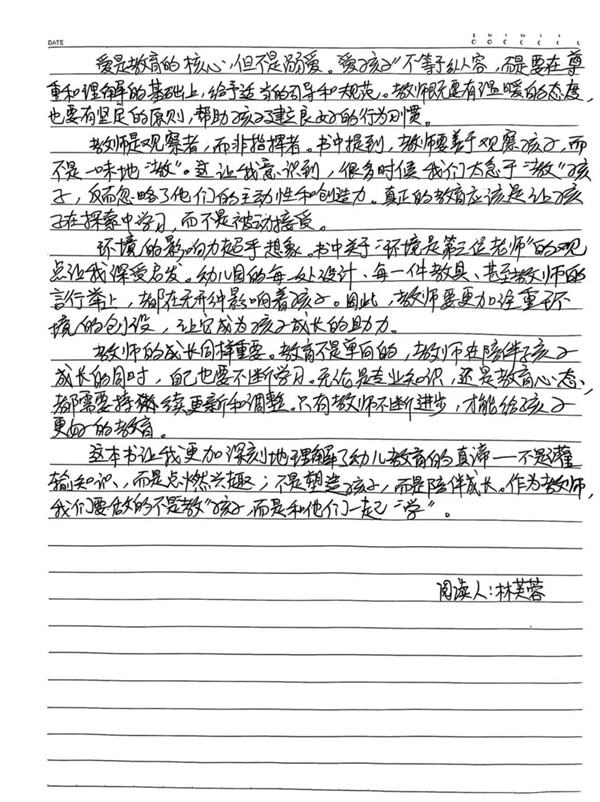 DATE
爱是教育的核心,但不是溺爱。爱孩子"不等于纵容,而是要在尊
重和理解的基础上,给予适当的引导和规范。教师既要有温暖的态度,
也要有坚定的原则,帮助孩子建立良好的行为习惯。
教师是观察者,而非指挥者。书中提到,教师要善于观察孩子,而
不是一味地"教"。这让我意识到,很多时候我们太急于"教"孩
子,反而忽略了他们的主动性和创造力。真正的教育应该是让孩
子在探索中学习,而不是被动接受。
环境的影响力超乎想象。书中关于"环境是第三位老师"的观
点让我深受启发。幼儿园的每一处设计、每一件教具、甚至教师的
言行举止,都在无形中影响着孩子。因此,教师要更加注重环
境的创设,让它成为孩子成长的助力。
教师的成长同样重要。教育不是单向的,教师在陪伴孩子
成长的同时,自己也要不断学习。无论是专业知识,还是教育心态,
都需要持续更新和调整。只有教师不断进步,才能给孩子
更好的教育。
这本书让我更加深刻地理解了幼儿教育的真谛——不是灌
输知识,而是点燃兴趣;不是塑造孩子,而是陪伴成长。作为教师,
我们要做的不是教"孩子,而是和他们一起"学"。
阅读人:林芙蓉